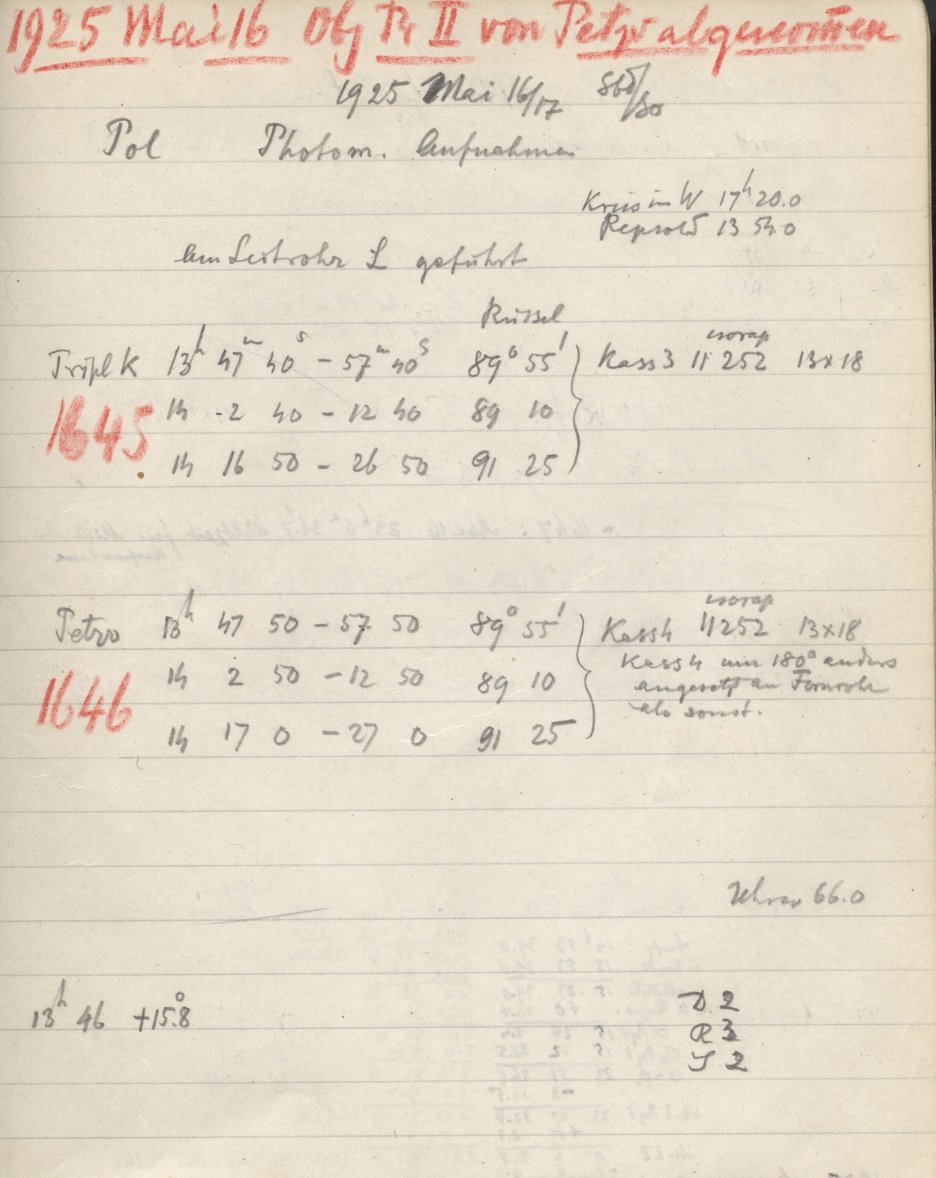 1925 Mai 16 Obj Pr II von Petzv abgenom̄en
1925 Mai 16/17
Pol Photom. Aufnahmen
Kreis im W 17h 20.0
Repsold 13 54.0
Am Leitrohr L geführt
Rüssel
Tripl K 13h 47m 40s – 57m 40s 89° 55' Kass 3 isorap 11252 13x18
1645
14 2 40 – 12 40 89 10
14 16 50 – 26 50 91 25
Petzv 13h 47 50 – 57 50 89° 55' Kass 4 isorap 11252 13x18
1646
14 2 50 – 12 50 89 10 Kass 4 um 180° anders
angesetzt an Fernrohr
als sonst.
14 17 0 – 27 0 91 25
66.0
13h 46 +15.8°
D 2
R 3
S 2